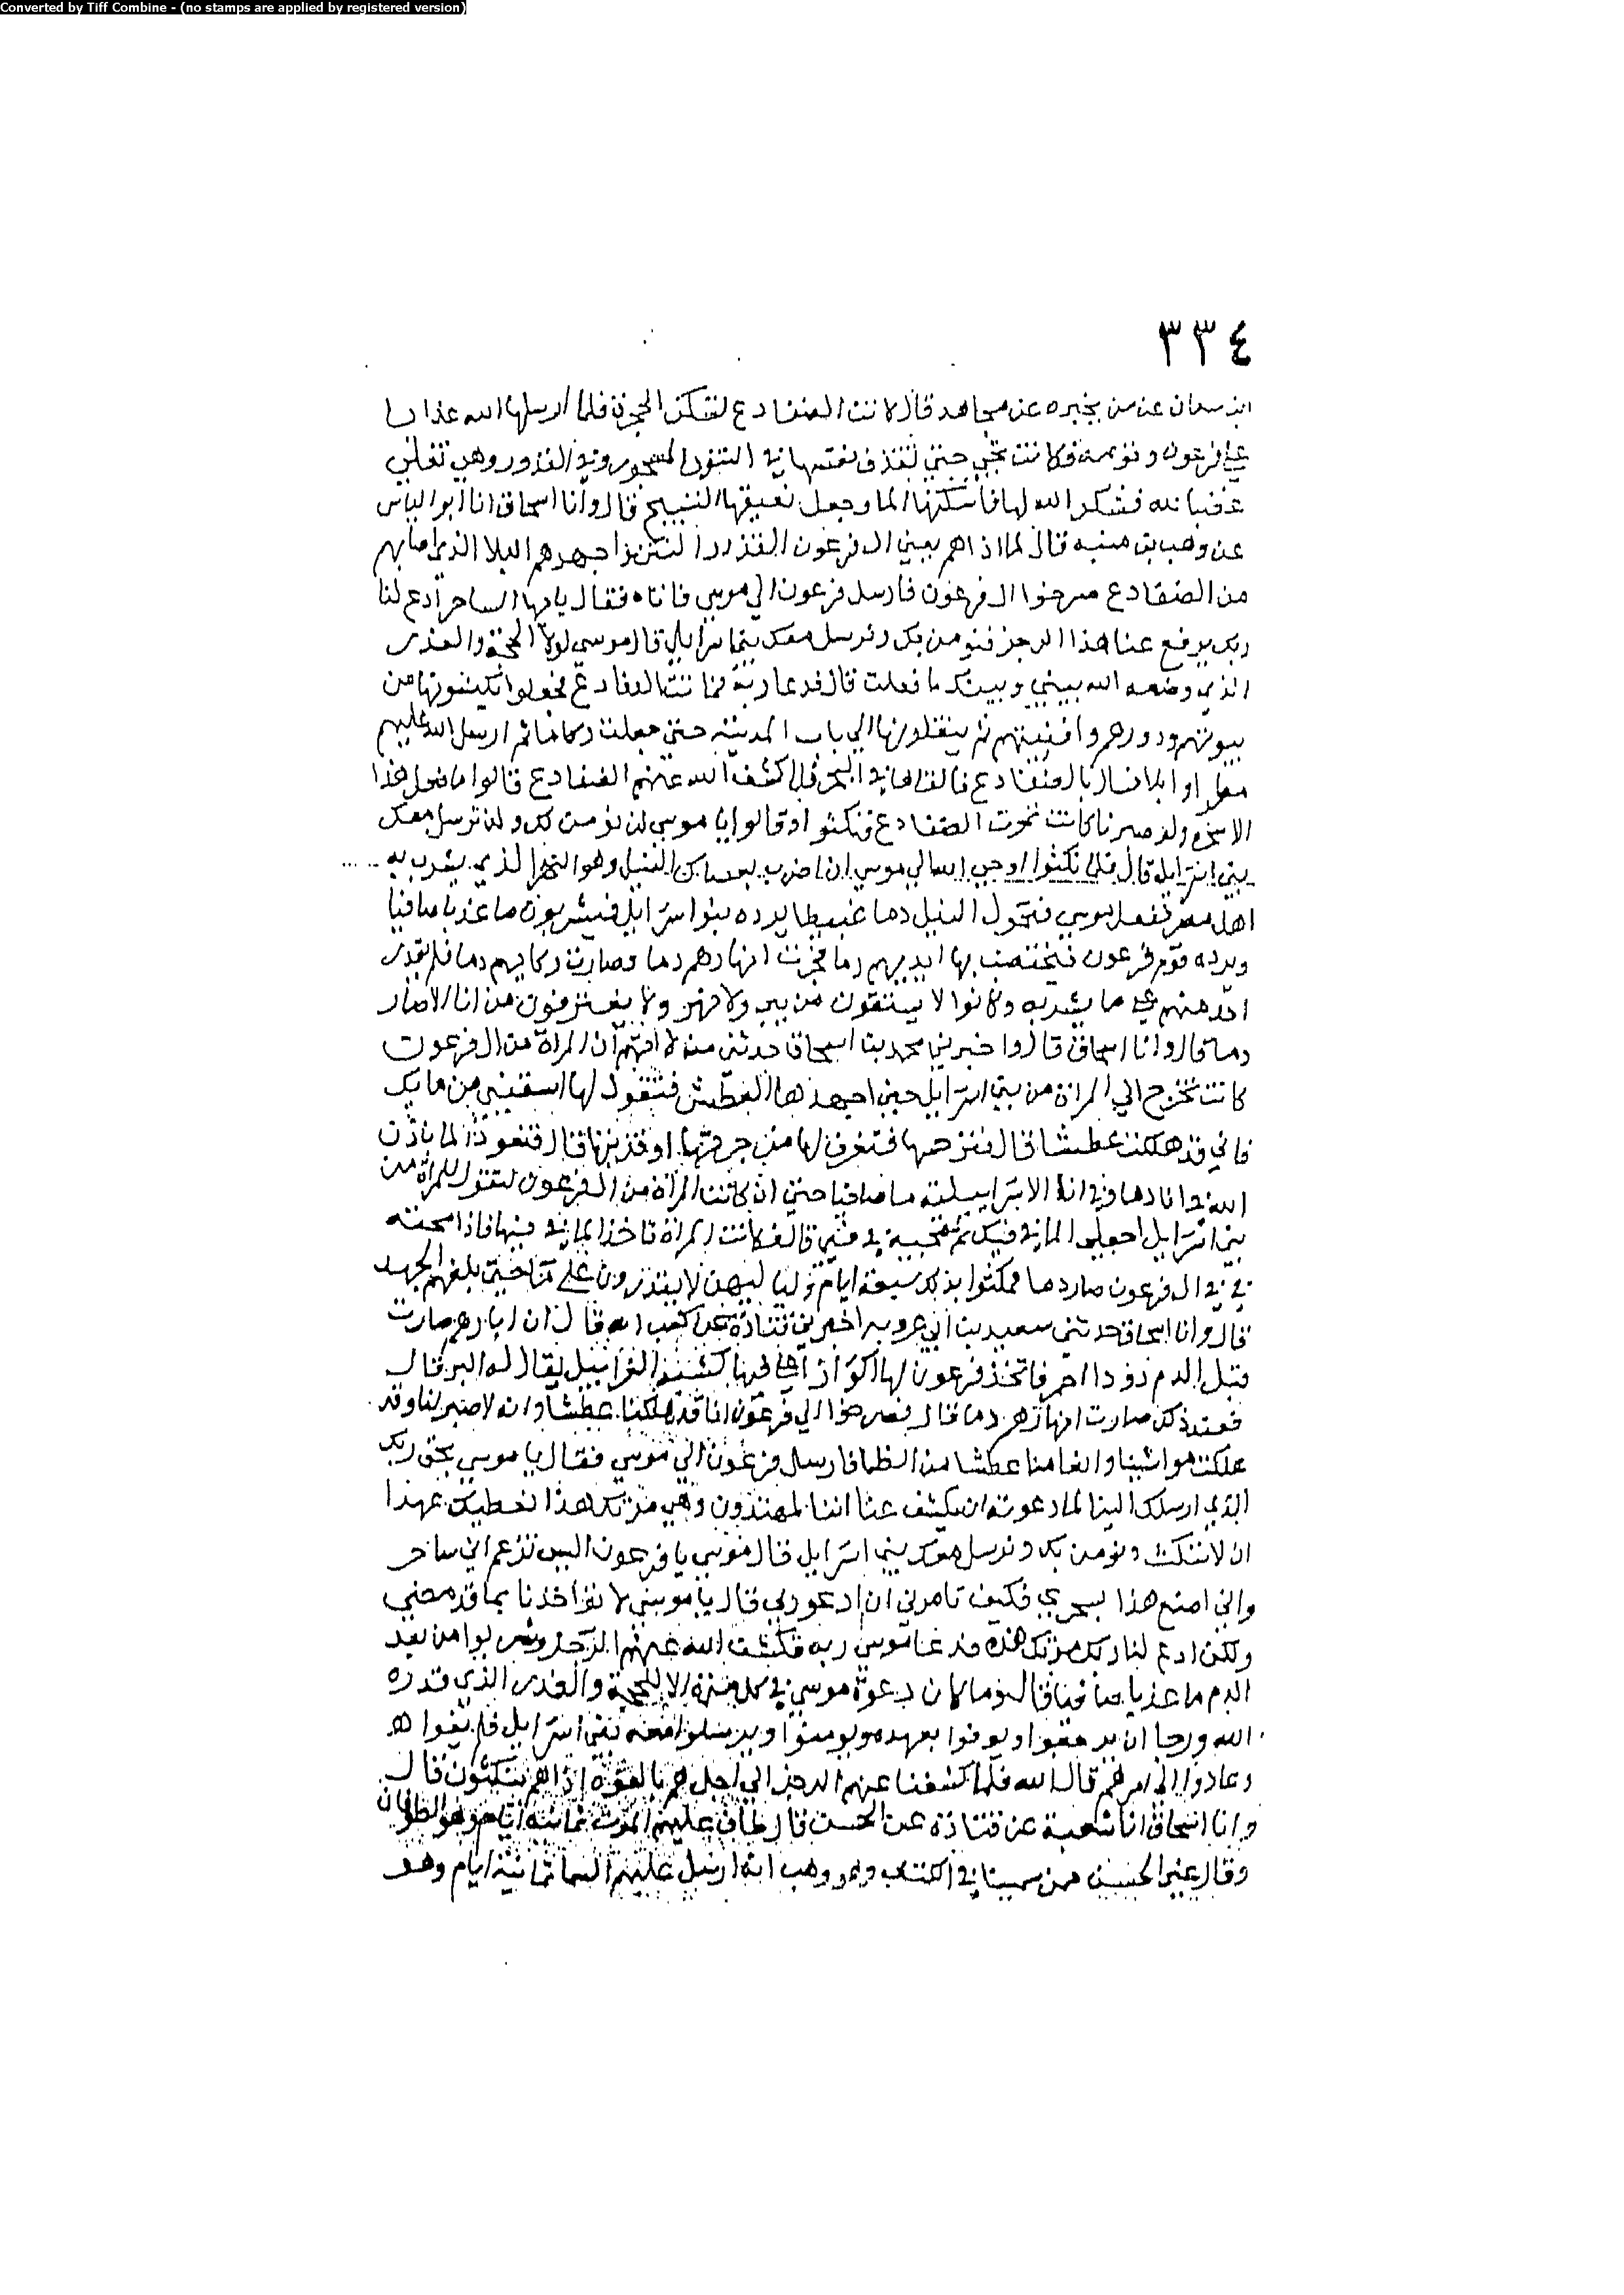 Converted by Tiff Combine - (no stamps are applied by registered version)
٣٣٤
ابن سمعان عن من يخبره عن مجاهد قال كانت الضفادع تسكن الجحرة فلما ارسلها الله عذابا
علي فرعون وقومه فكانت تجي حتي تقذف نفسها في التنور المسجور وفي القدور وهي تغلي
غضبا لله فشكر الله لها فاسكنها الما وجعل نعيقها التسبيح قال وانا اسحاق انا ابو الياس
عن وهب بن منبه قال لما اذاهم يعني ال فرعون القذر والنتن واجهدهم البلا الذي اصابهم
من الضفادع صرخوا ال فرعون فارسل فرعون الي موسي فاتاه فقال يا ايها الساحر ادع لنا
ربك يرفع عنا هذا الرجز فنومن بك ونرسل معك بني اسرايل قال موسي لولا الحجة والعذر
الذي وضعه الله بيني وبينك ما فعلت قال فدعا ربه فماتت الضفادع فجعلوا يكنسونها من
بيوتهم ودورهم وافنيتهم ثم ينقلونها الي باب المدينة حتي جعلت ركاما ثم ارسل الله عليهم
مطرا وابلا فسال بالضفادع فالقاها في البحر فلما كشف الله عنهم الضفادع قالوا ما فعل هذا
الا سحره ولو صبرنا كانت تموت الضفادع فنكثوا وقالوا يا موسي لن نومن لك ولن نرسل معك
بني اسرايل قال فلما نكثوا اوحي الله الي موسي ان اضرب بعصاك النيل وهو النهر الذي يشرب به
اهل مصر ففعل موسي فتحول النيل دما عبيطا يرده بنوا اسرايل فيشربون ما عذبا صافيا
ويرده قوم فرعون فتختضب بها ايديهم دما فجرت انهارهم دما وصارت ركاياهم دما فلم يقدر
احد منهم علي ما يشربه وكانوا لا يستقون من بير ولا نهر ولا يغترفون من انا الا صار
دما قال وانا اسحاق قال واخبرني محمد بن اسحاق حدثني من لا اتهم ان المراة من ال فرعون
كانت تخرج الي المراة من بني اسرايل حين اجهدها العطش فتقول لها اسقيني من مايك
فاني قد هلكت عطشا قال فترحمها فتغرف لها من جرتها او قربتها قال فتعود الما باذن
الله في اناها دما وفي انا الاسراييلية ما صافيا حتي ان كانت المراة من ال فرعون لتقول للمراة من
بني اسرايل اجعلي الما في فيك ثم تمجيه في في قال فكانت المراة تاخذ الما في فيها فاذا مجته
في في ال فرعون صار دما فمكثوا بذلك سبعة ايام ولياليهن لا يقدرون علي ما حتي بلغهم الجهد
قال وانا اسحاق حدثني سعيد بن ابي عروبه اخبرني قتادة عن كعب انه قال ان ابارهم صارت
قبل الدم
فعند ذلك صارت انهارهم دما قال فصرخوا الي فرعون انا قد هلكنا عطشا وانه لا صبر لنا وقد
هلكت مواشينا وانعامنا عطشا من الظما فارسل فرعون الي موسي فقال يا موسي بحق ربك
الذي ارسلك الينا لما دعوته ان يكشف عنا اننا لمهتدون وهي مرتك هذا نعطيك عهدا
ان لا ننكث ونومن بك ونرسل معك بني اسرايل قال موسي يا فرعون اليس تزعم اني ساحر
واني اصنع هذا بسحري فكيف تامرني ان ادعو ربي قال يا موسي لا تواخذنا بما قد مضي
ولكن ادع لنا ربك مرتك هذه فدعا موسي ربه فكشف الله عنهم الرجز وشربوا من بعد
الدم ما عذبا صافيا قال وما كان دعوة موسي في كل مرة الا للحجة والعذر الذي قدره
الله ورجا ان يرجعوا ويوفوا بعهده ويومنوا ويرسلوا معه بني اسرايل فلم يفوا
وعادوا الي امرهم قال الله فلما كشفنا عنهم الرجز الي اجل هم بالغوه اذا هم ينكثون قال
وانا اسحاق انا شعبة عن قتادة عن الحسن قال طاف عليهم الموت ثمانية ايام وهو الطوفان
وقال غير الحسن ممن سمينا في الكتاب وهو وهب انه ارسل عليهم السما ثمانية ايام وهو